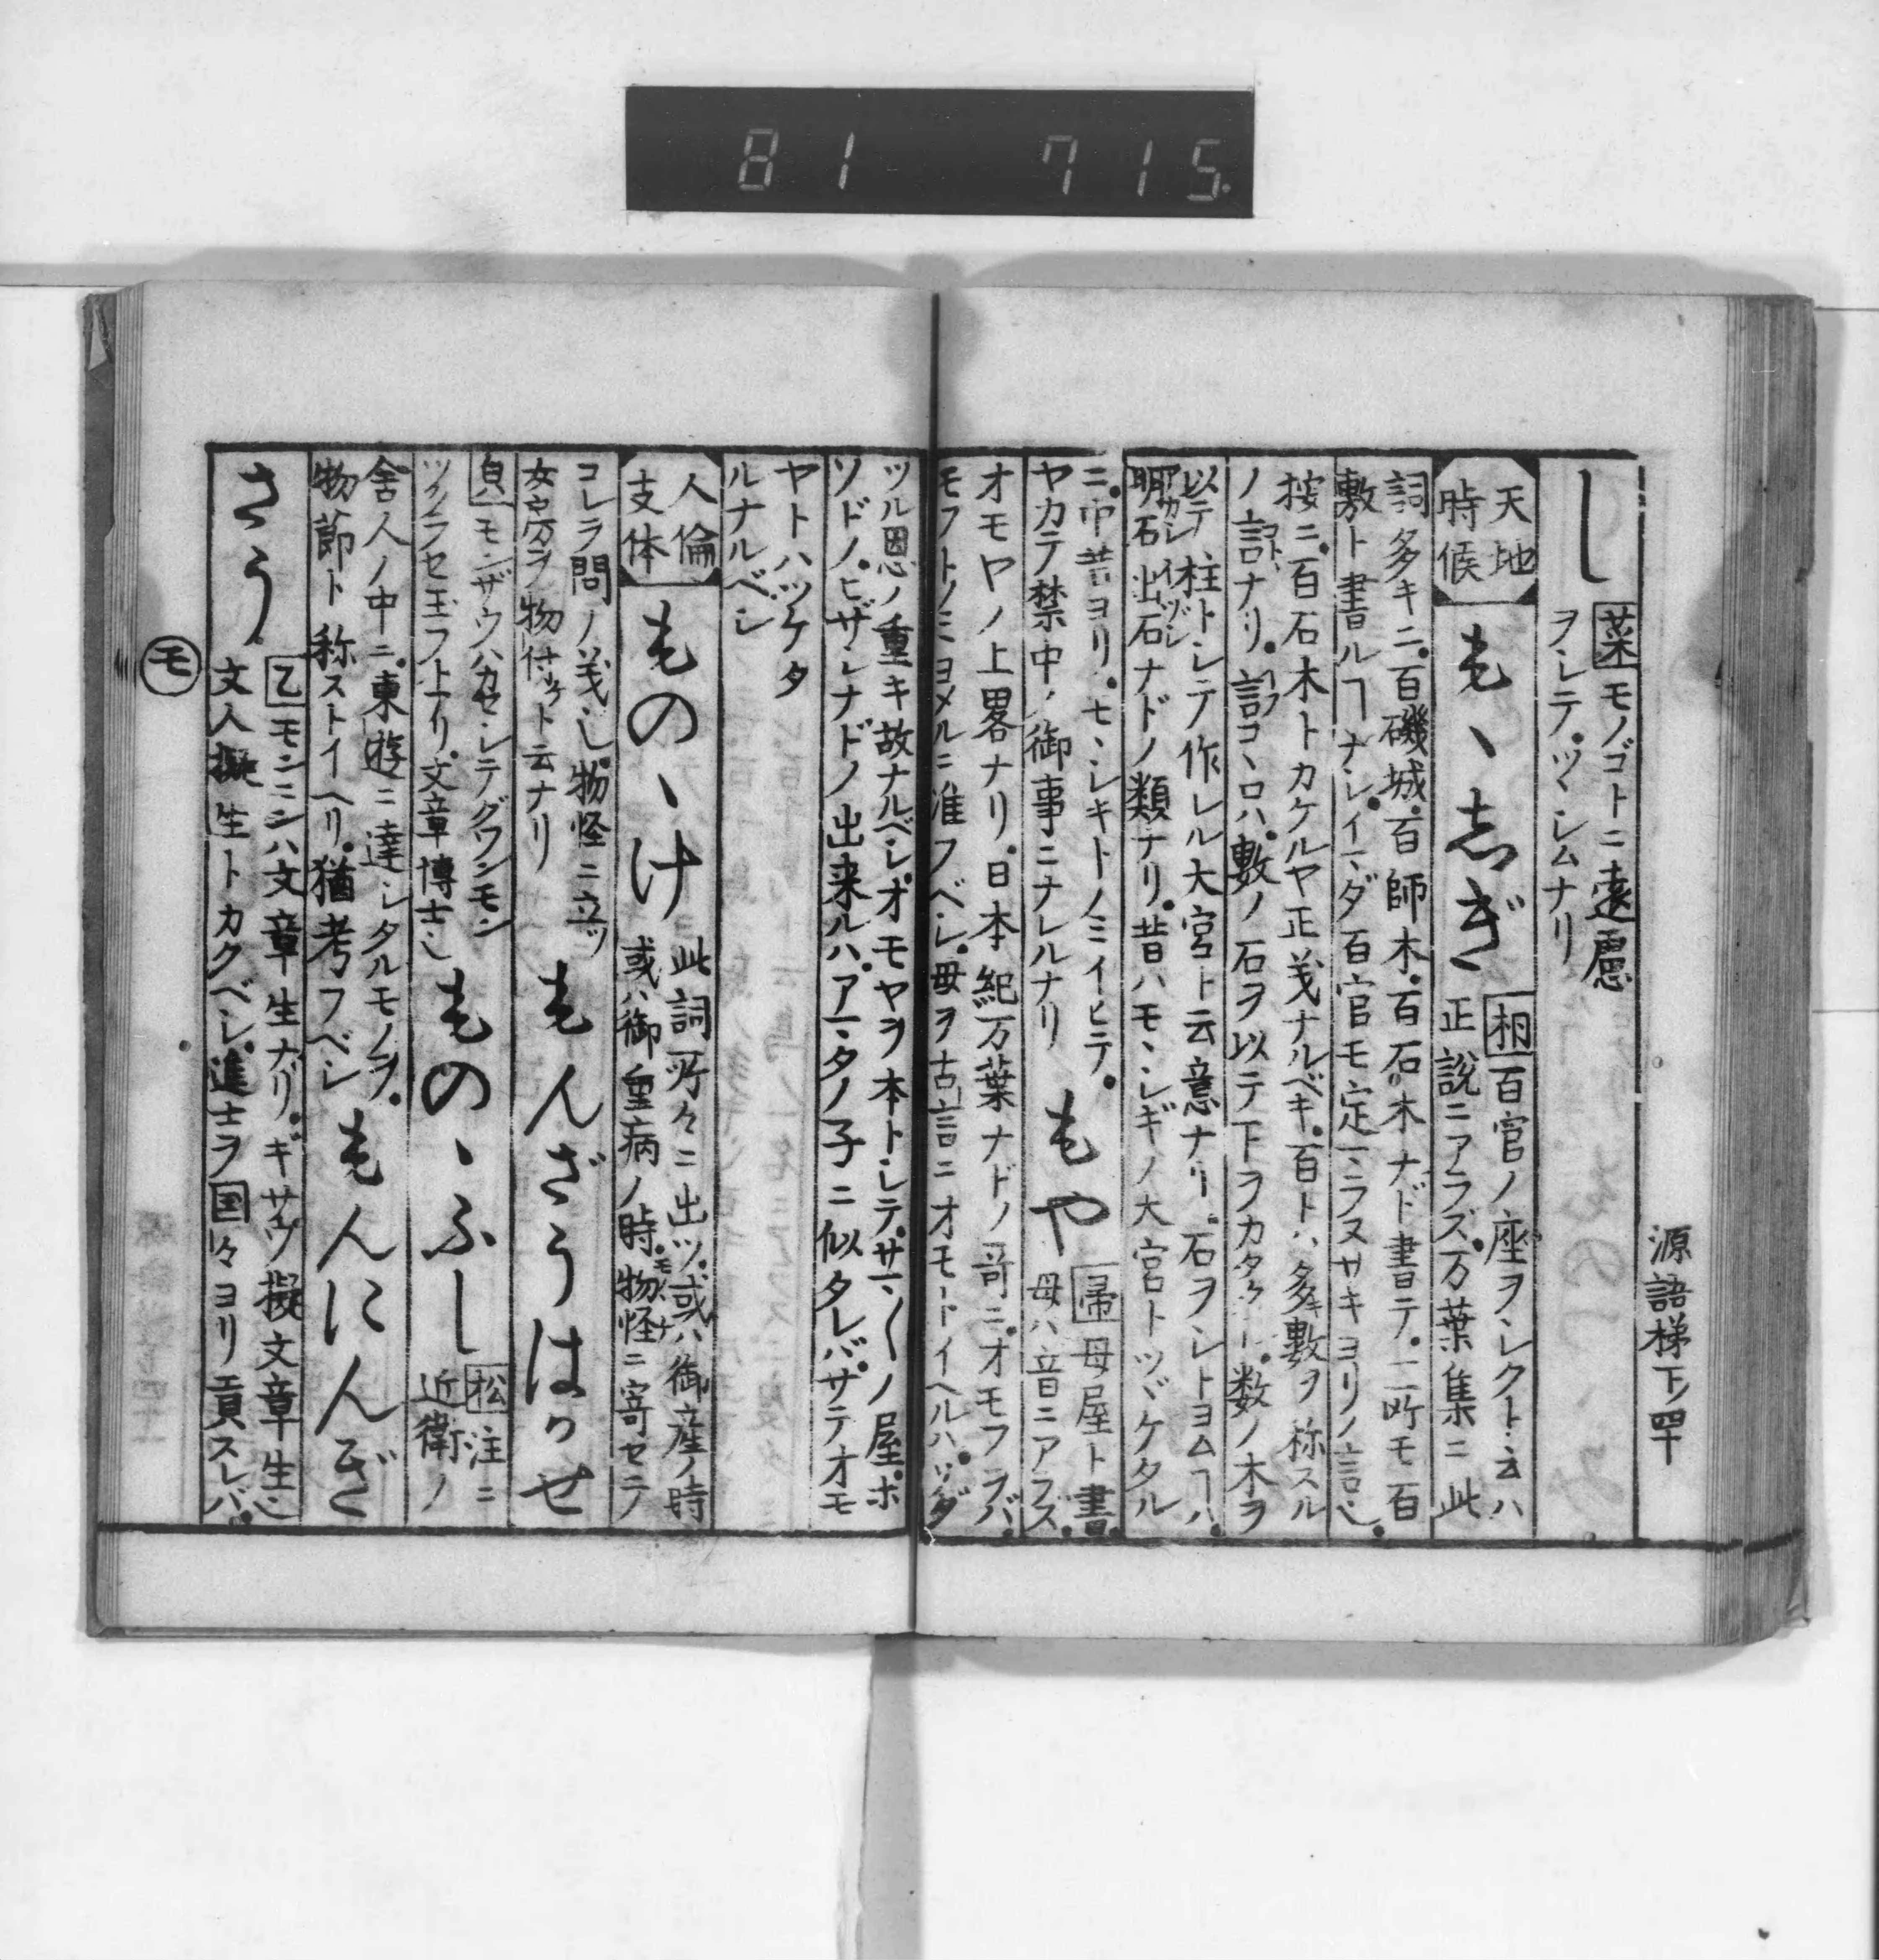 81 715
源語梯下ノ四十
し 菜モノゴトニ遠慮
ヲシテ。ツヽシムナリ
天地
時候
もゝしぎ 相百官ノ座ヲシクト云ハ
正説ニアラズ。万葉集ニ此
詞多キニ。百磯城。百師木。百石木ナド書テ。二所モ百
敷ト書ルヿナシ。イマダ百官モ定マラヌサキヨリノ言也。
按ニ。百石木トカケルヤ正義ナルベキ。百トハ多キ數ヲ称スル
ノ言ナリ。言コヽロハ。數ノ石ヲ以テ下ヲカタメ。数ノ木ヲ
以テ柱トシテ作レル大宮ト云意ナリ。石ヲシトヨムヿハ。
明石出石ナドノ類ナリ。昔ハモヽシギノ大宮トツヾケタル
ニ。中昔ヨリ。モヽシキトノミイヒテ。
ヤカテ禁中ノ御事ニナレルナリ
もや 帚母屋ト書。
母ハ音ニアラズ。
オモヤノ上畧ナリ。日本紀万葉ナドノ哥ニ。オモフラバ。
モフトノミヨメルニ准フベシ。母ヲ古言ニオモトイヘルハ。ソダ
ツル恩ノ重キ故ナルベシ。オモヤヲ本トシテ。サマ〱ノ屋。ホ
ソドノ。ヒザシナドノ出来ルハ。アマタノ子ニ似タレバ。サテオモ
ヤトハツケタ
ルナルベシ
人倫
支体
ものゝけ 此詞所々ニ出ツ。或ハ御産ノ時
或ハ御重病ノ時。物怪ニ寄セテ
コレヲ問ノ義也。物怪ニ立ツ
女房ヲ物付ト云ナリ
もんざうはかせ
モンザウハカセシテグワンモン
ツクラセ玉フトナリ。文章博士也
ものゝふし 松注ニ
近衛ノ
舎人ノ中ニ。東遊ニ達シタルモノヲ。
物節ト称ストイヘリ。猶考フベシ
もんにんぎ
さう 乙モンニンハ文章生ナリ。ギサウハ擬文章生也
文人擬生トカクベシ。進士ヲ国々ヨリ貢スレバ。
モ